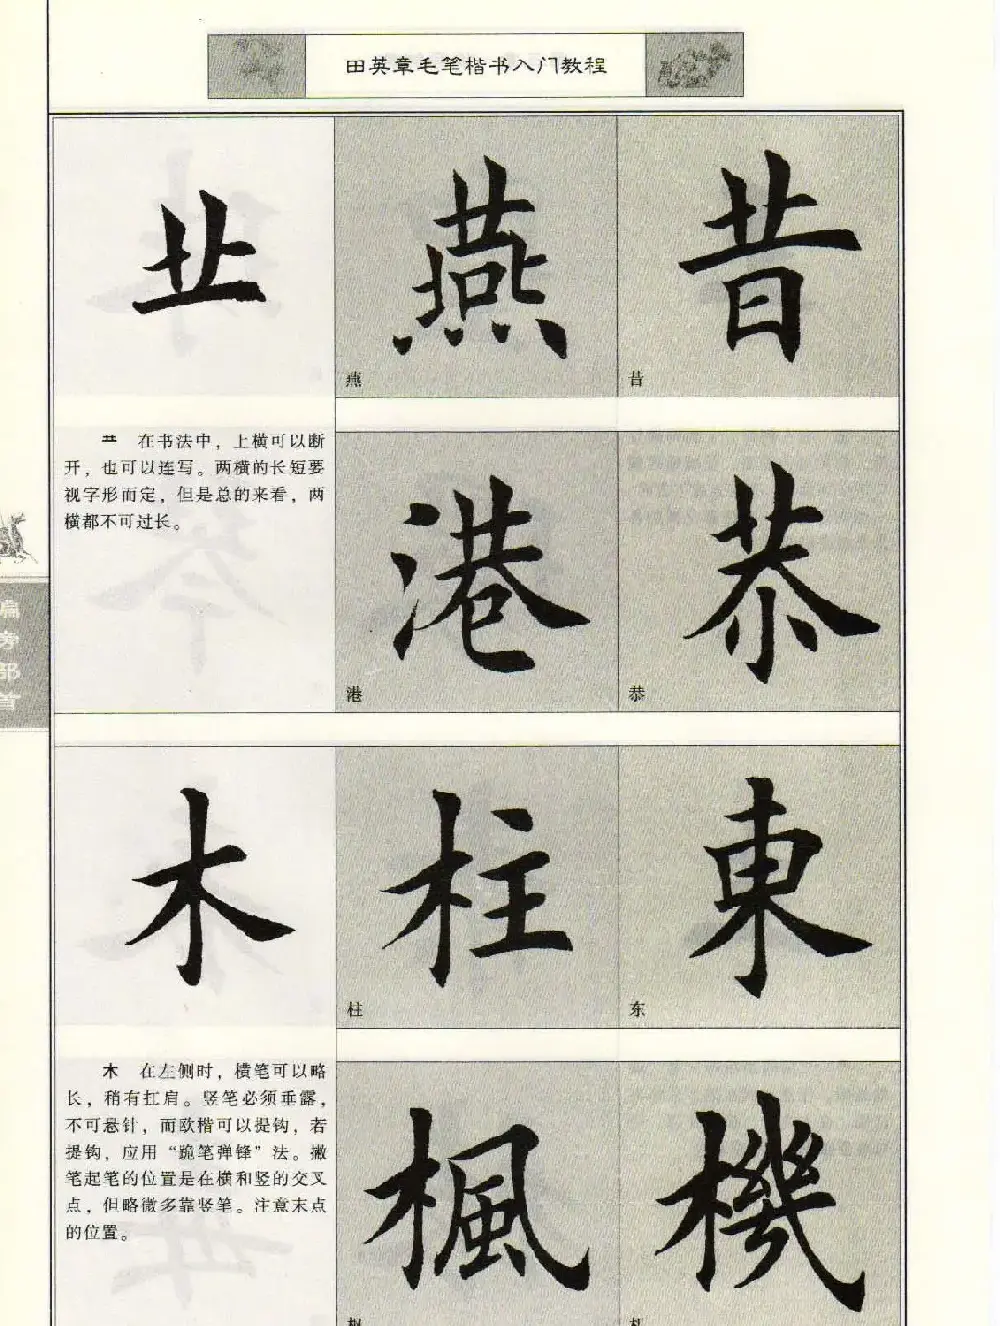 田英章毛笔楷书入门教程
龷
燕
昔
燕
昔
龷 在书法中，上横可以断
开，也可以连写。两横的长短要
视字形而定，但是总的来看，两
横都不可过长。
港
恭
港
恭
偏旁部首
木
柱
東
柱
东
木 在左侧时，横笔可以略
长，稍有扛肩。竖笔必须垂露，
不可悬针，而欧楷可以提钩，若
提钩，应用“跪笔弹锋”法。撇
笔起笔的位置是在横和竖的交叉
点，但略微多靠竖笔。注意末点
的位置。
楓
機